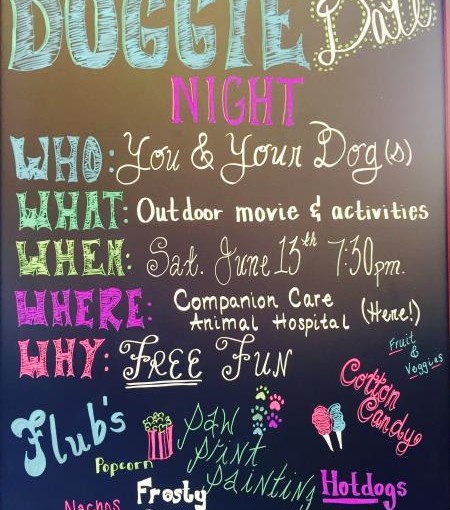 DOGGIE Date
NIGHT
WHO: You & Your Dog(s)
WHAT: Outdoor movie & activities
WHEN: Sat. June 13th 7:30pm.
WHERE: Companion Care
Animal Hospital (Here!)
WHY: FREE FUN
Fruit
& Veggies
Cotton
Candy
Flub's
Popcorn
paw
print
painting
Hotdogs
Frosty
Nachos